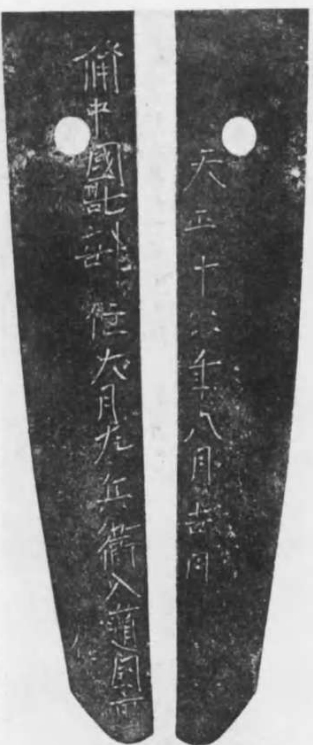 天正十六年八月吉日
備中國呰部住大月左兵衛入道國重作